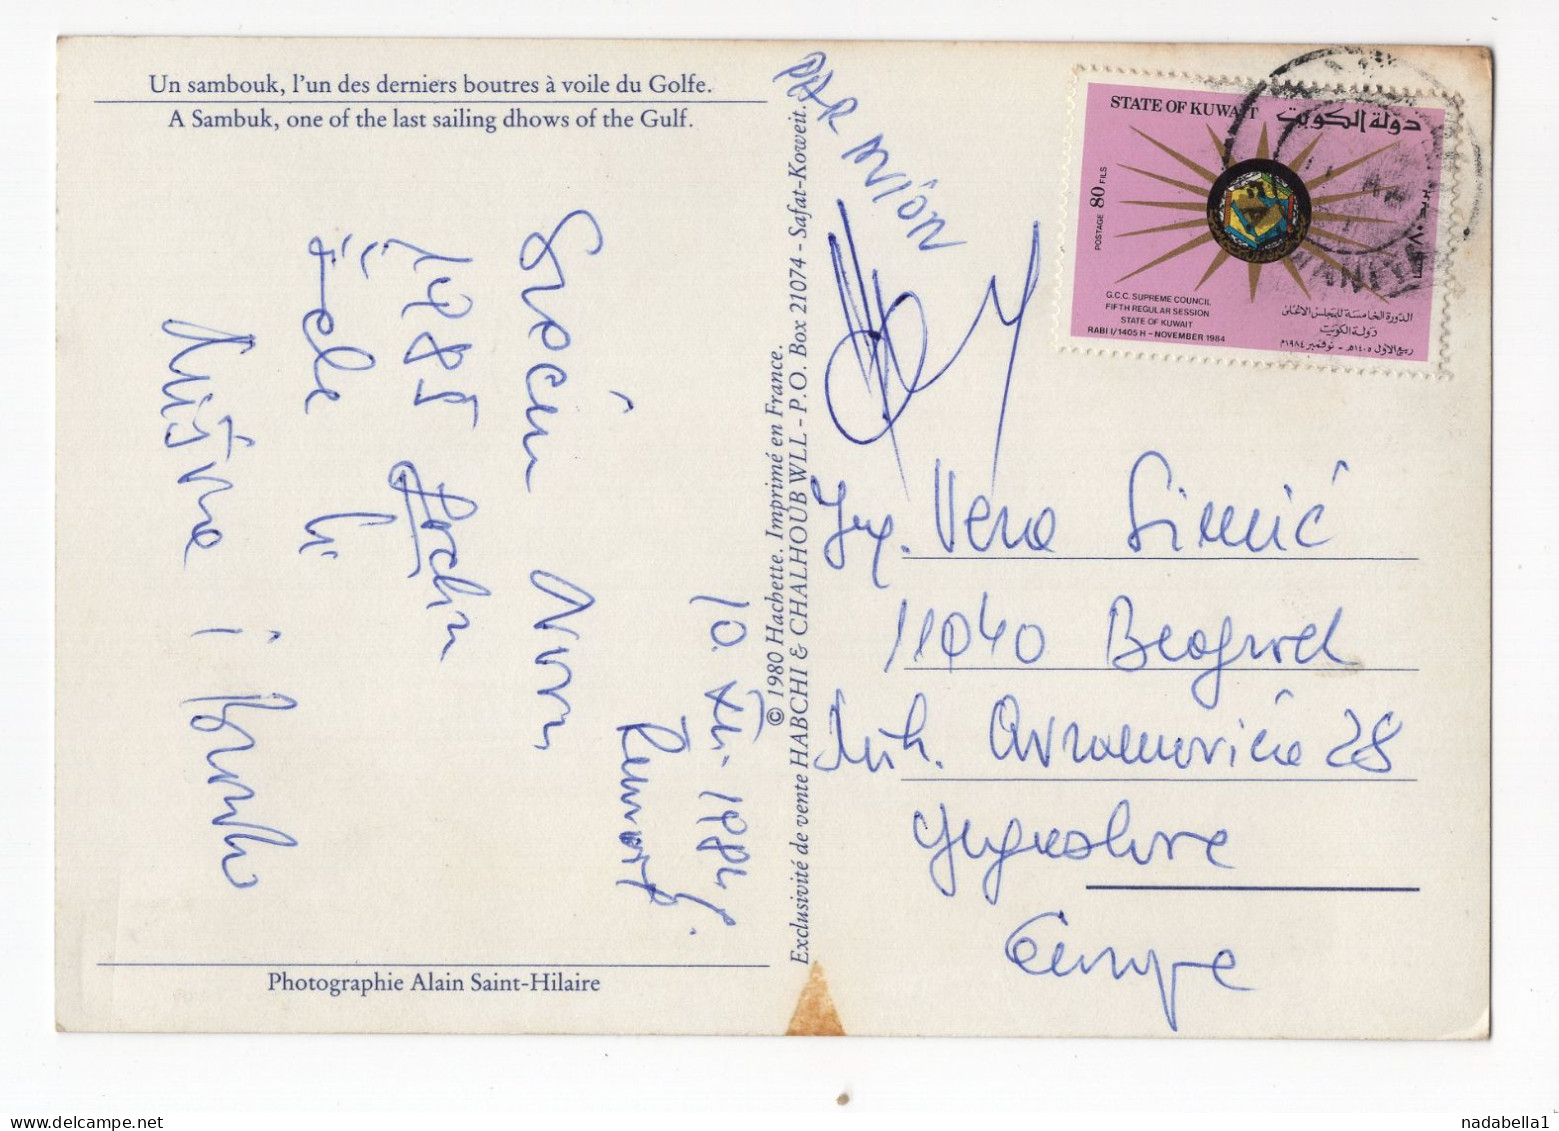 Un sambouk, l'un des derniers boutres à voile du Golfe.
A Sambuk, one of the last sailing dhows of the Gulf.
10. XII. 1984.
Srećnu Novu
1985 godinu
žele Vi
i Branko
Photographie Alain Saint-Hilaire
© 1980 Hachette. Imprimé en France.
Exclusivité de vente HABCHI & CHALHOUB WLL - P.O. Box 21074 - Safat-Koweit.
PAR AVION
STATE OF KUWAIT
دولة الكويت
POSTAGE 80 FILS
G.C.C. SUPREME COUNCIL
FIFTH REGULAR SESSION
STATE OF KUWAIT
RABI I/1405 H - NOVEMBER 1984
الدورة الخامسة للمجلس الأعلى
دولة الكويت
ربيع الأول ١٤٠٥هـ - نوفمبر ١٩٨٤م
Vera Simić
11040 Beograd
Avramovića 28
Jugoslavia
Europe
nadabella1